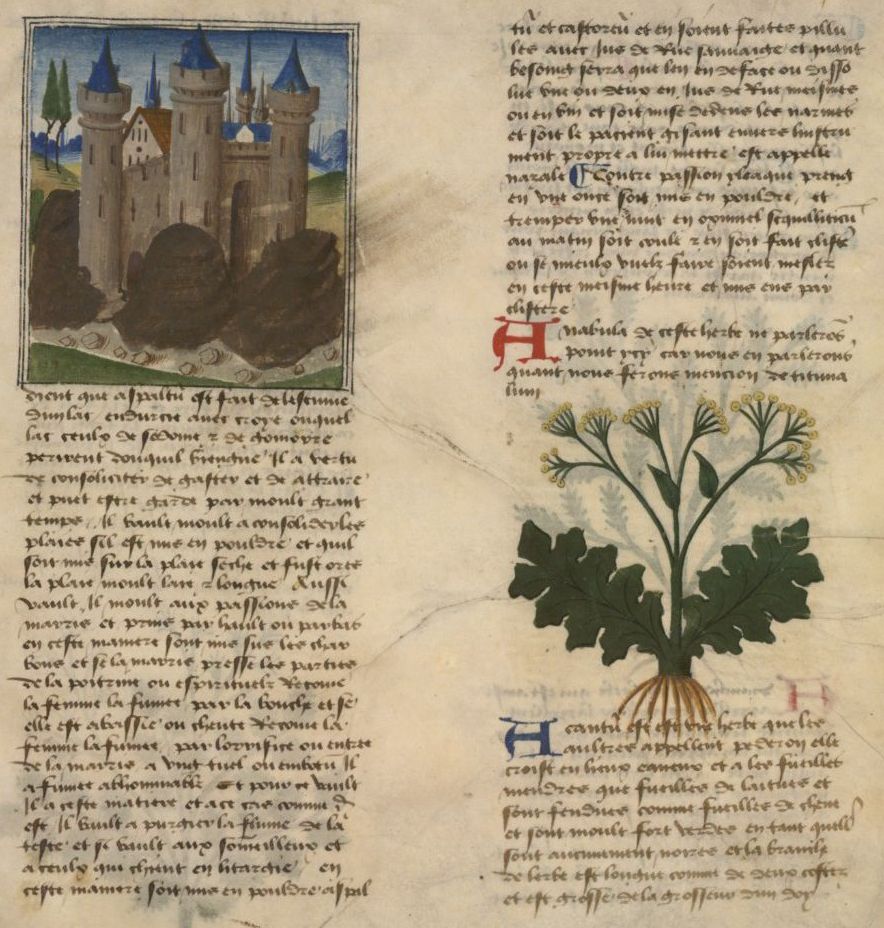 dient que aspaltū est fait de lescume
dun lac endurcie avec croye ouquel
lac ceulx de sodome ⁊ de gomorre
perirent douquil viengne Il a vertu
de consolider de gaster et de attraire
et puet estre garde par moult grant
temps. Il vault moult a consolider les
plaies sil est mis en pouldre et quil
soit mis sur la plaie seche et fust ores
la plaie moult lare ⁊ longue Aussi
vault Il moult aux passions de la
marris et prins par hault ou par bas
en ceste maniere sont mis sus les char
bons et se la marris presse les parties
de la poitrine ou espirituelz Recoive
la femme la fumee par la bouche et se
elle est abaissie ou cheute Recoive la
femme la fumee par lorrifice ou entree
de la marris a ung tuel ou embotu Il
a fumee abhominable Et pour ce vault
Il a ceste matiere et a ce cas comme
est Il vault a purgier la flume de la
teste et si vault aux someilleux et
a ceulx qui chient en litargie en
ceste maniere soit mis en pouldre aspal
tū et castoreū et en soient faites pillu
les avec Jus de Rue sauvaige et quant
besoing serra que len en deface ou disso
lue une ou deux en Jus de Rue meismes
ou en vin et soit mise dedens les narines
et soit le pacient gisant envers linstru
ment propre a lui mettre est appelle
nazale Contre passion yleaque preng
en une once soit mis en pouldre, et
tremper une nuit en oximel squaliticū
au matin soit coule ⁊ en soit fait clistē
ou se mieulx vuelz faire soient mesler
en ceste meisme heure et mis ens par
clistere
Anabula de ceste herbe ne parlerōs
point ycy car nous en parlerons
quant nous ferons mencion de titima
lum
Acantū est est une herbe que les
aultres appellent pederon elle
croist en lieux eaueux et a les fueilles
mendres que fueilles de laitues et
sont fendues comme fueilles de chene
et sont moult fort verdes en tant quell
sont aucunement noires et la branche
de lerbe est longue comme de deux costes
et est grosse de la grosseur dun doy